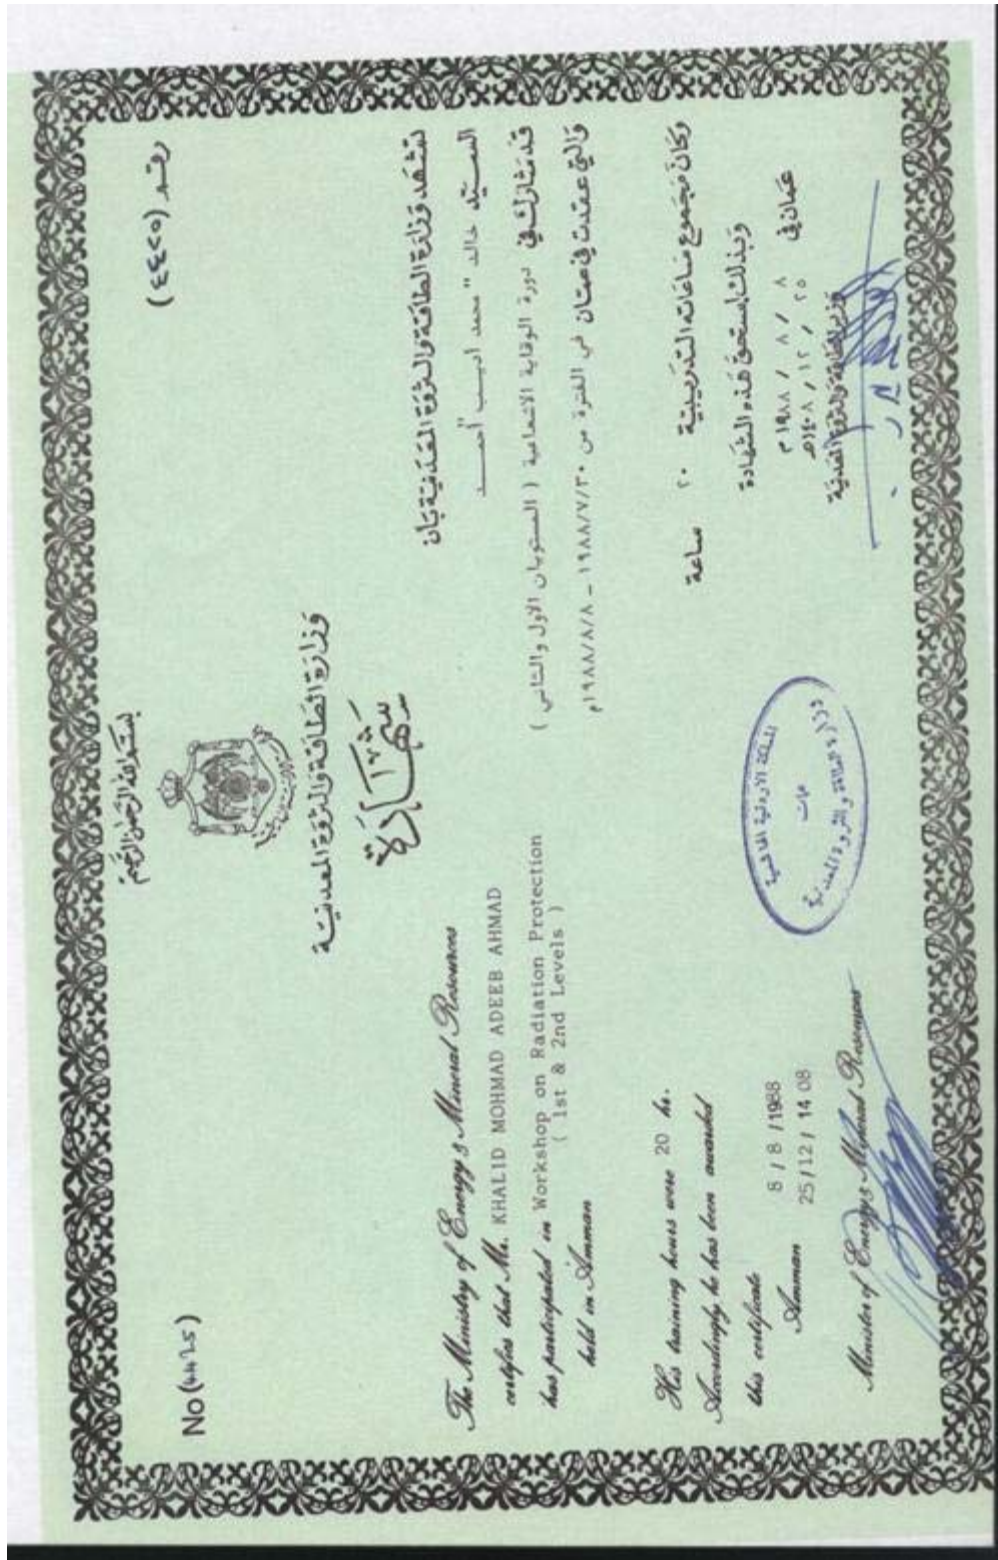 بسم الله الرحمن الرحيم
رقم (٤٤٢٥)
No (4425)
وزارة الطاقة والثروة المعدنية
شهادة
تشهد وزارة الطاقة والثروة المعدنية بان
السيد خالد "محمد اديب" أحمد
قد شارك في دورة الوقاية الاشعاعية ( المستويان الاول والثاني )
والتي عقدت في عمان في الفترة من ١٩٨٨/٧/٣٠ - ١٩٨٨/٨/٨م
وكان مجموع ساعاته التدريبية ٢٠ ساعة
وبذلك استحق هذه الشهادة
عمان في ٨ / ٨ / ١٩٨٨م
٢٥ / ١٢ / ١٤٠٨هـ
وزير الطاقة والثروة المعدنية
The Ministry of Energy & Mineral Resources
certifies that Mr. KHALID MOHMAD ADEEB AHMAD
has participated in Workshop on Radiation Protection
( 1st & 2nd Levels )
held in Amman
His training hours were 20 hr.
Accordingly he has been awarded
this certificate
Amman 8 / 8 / 1988
25 / 12 / 14 08
Minister of Energy & Mineral Resources
المملكة الاردنية الهاشمية
عمان
وزارة الطاقة والثروة المعدنية